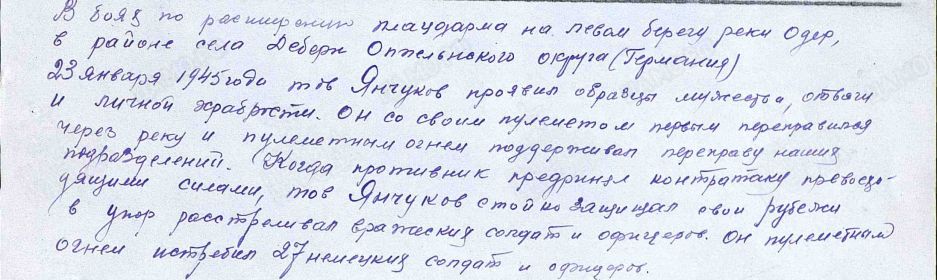 В боях по расширению плацдарма на левом берегу реки Одер,
в районе села Деберн Оппельнского округа (Германия)
23 января 1945 года тов Янчуков проявил образцы мужества, отваги
и личной храбрости. Он со своим пулеметом первым переправился
через реку и пулеметным огнем поддерживал переправу наших
подразделений. Когда противник предпринял контратаку превосхо-
дящими силами, тов Янчуков стойко защищал свои рубежи
в упор расстреливал вражеских солдат и офицеров. Он пулеметным
огнем истребил 27 немецких солдат и офицеров.